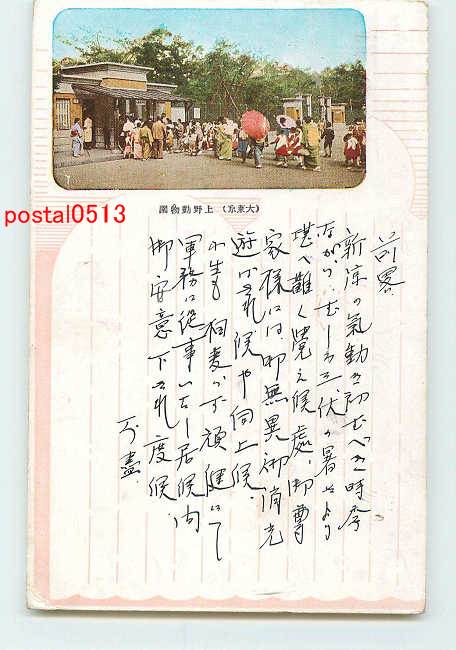 postal0513
(大東京) 上野動物園
前畧
新涼の氣動き初むべき時令
ながら、むしろ三伏の暑さより
堪へ難く覚え候處、御尊
家様には御無異御消光
遊ばされ候や伺上候。
小生も相変らず頑健にて
軍務に従事いたし居候間
御安意下され度候。
不盡